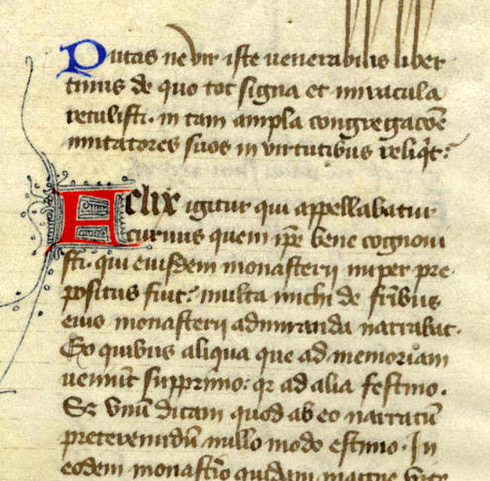 Putas ne vir iste venerabilis liber
tinus de quo tot signa et miracula
retulisti. in tam ampla congregacōe
imitatores suos in virtutibus reliq̇t:
Felix igitur qui appellabatur
curvus quem ip̄e bene cognoui
sti. qui eiusdem monasterij nuper pre-
positus fuit: multa michi de fr̄ibus
eius monasterij admiranda narrabat.
Ex quibus aliqua que ad memoriam
veniūt supprimo: qr ad alia festino.
Sꝫ vnū dicam quod ab eo narratū
pretereūdū nullo modo estimo. In
eodem monastr̄io quidam magne vite